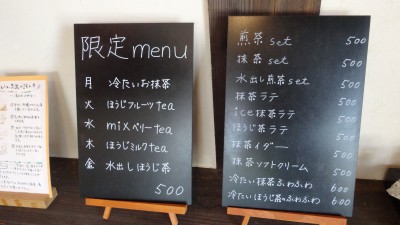 限定menu
月 冷たいお抹茶
火 ほうじフルーツtea
水 mixベリーtea
木 ほうじミルクtea
金 水出しほうじ茶
500
煎茶set 500
抹茶set 500
水出し煎茶set 500
抹茶ラテ 500
ice抹茶ラテ 500
ほうじ茶ラテ 500
抹茶イダー 500
抹茶ソフトクリーム 500
冷たい抹茶ふわふわ 600
冷たいほうじ茶のふわふわ 600